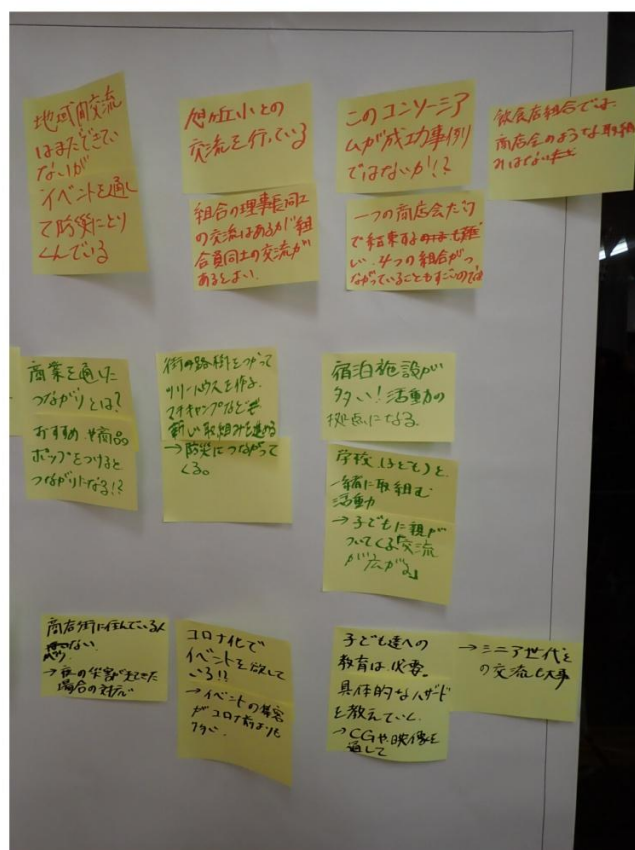 地域間交流
はまだできてい
ないが
イベントを通し
て防災にとり
くんでいる
旭ヶ丘小との
交流を行っている
組合の理事長同士
の交流はあるが組
合員同士の交流が
あるとよい.
このコンソーシア
ムが成功事例
ではないか!?
一つの商店会だけ
で結束するのは難
しい.4つの組合がつ
ながっていることもすごいのでは
飲食店組合では
商店会のような取組
みはない
商業を通した
つながりとは?
おすすめや商品
ポップをつけると
つながりになる!?
街の路樹をつかって
ツリーハウスを作る.
マチキャンプなど
新しい取組みを進める
→防災につながって
くる。
宿泊施設が
多い!活動の
拠点になる.
学校(子ども)と
一緒に取組む
活動
→子どもに親が
ついてくる「交流
が広がる」
商店街に住んでいる人
→夜の災害が起きた
場合の対応
コロナ化で
イベントを欲して
いる!!
→イベントの集客
がコロナ前よりも
多い.
子ども達への
教育は必要.
具体的なハザード
を教えていく
→CGや映像を
通して
→シニア世代と
の交流も大事